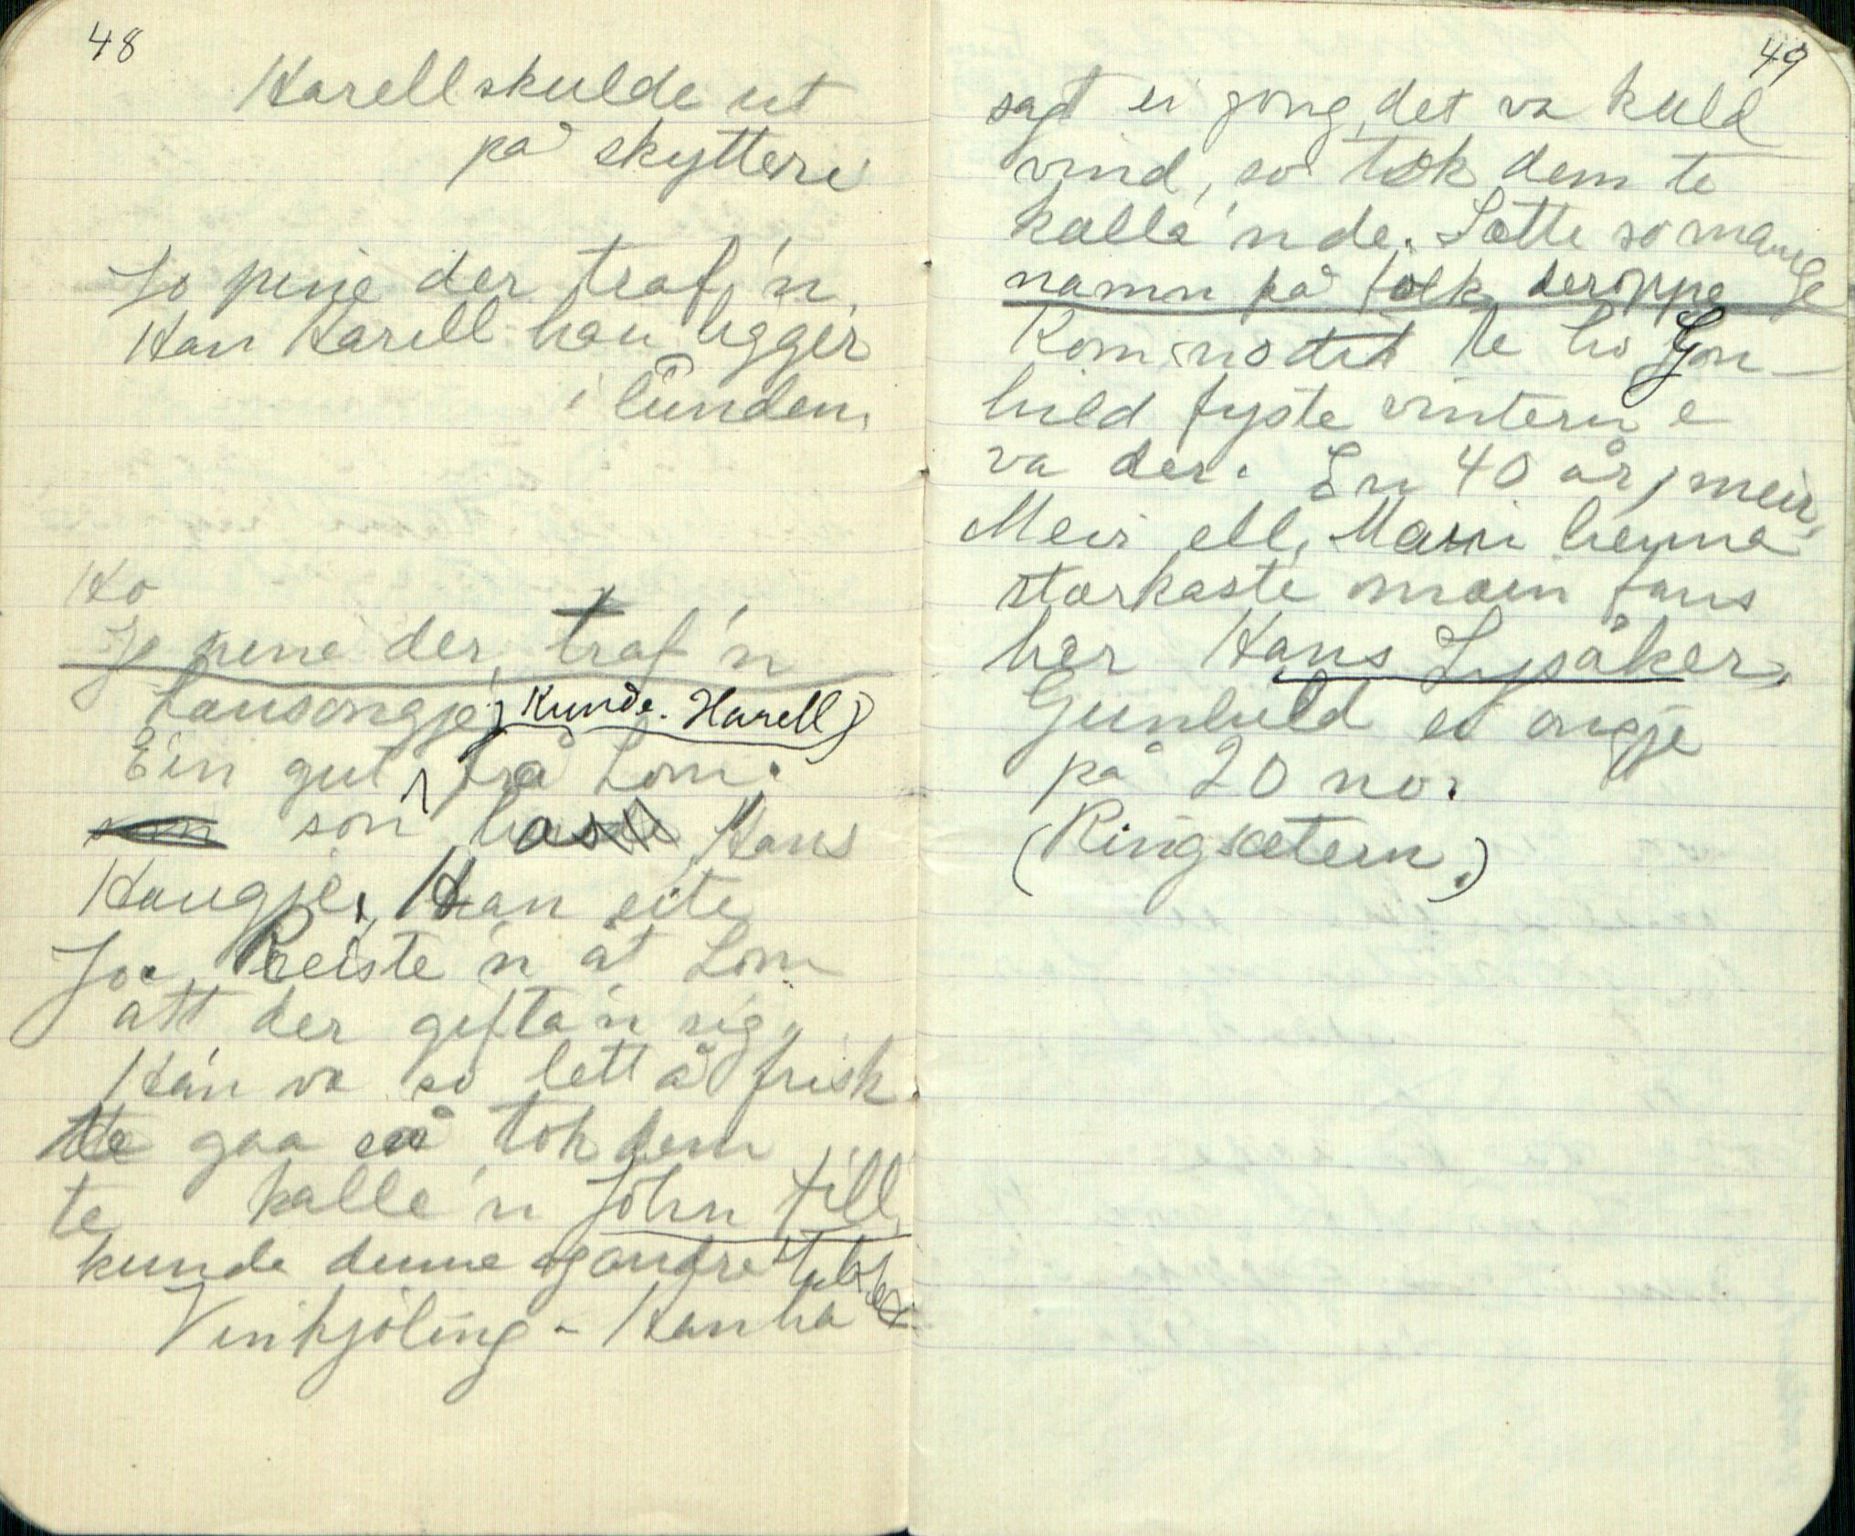 48
Harell skulde ut
på skytteri
Jo pine der traf'n.
Han Harell han ligger
i lunden.
Ho
Jo pine der traf'n
lausongje, (Kunde. Harell)
Ein gut frå Lom.
son Hans
Haugje. Han eite
Jo. Reiste 'n åt Lom
att der gifta'n sig.
Han va so lett å frisk
te gaa so tok dem
te kalle 'n John till
kunde denne og andre
Vinkjöling - Han ha
49
sagt ei gong, det va kald
vind, so tok dem te
kalla 'n de. Sætte so mange
namn på folk deroppe
Kom no te ho Gon-
hild fyste vintern e
va der. En 40 år, meir,
Meir ell, Mari henna
starkaste main fans
her Hans Lysåker.
Gunhild ei ongje
på 20 no.
(Ringsætern.)